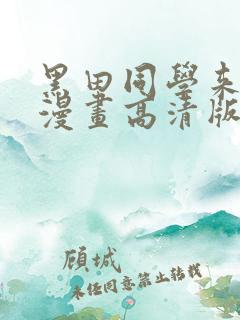 黑田同學来
漫畫高清版
顾城
未经同意禁止转载